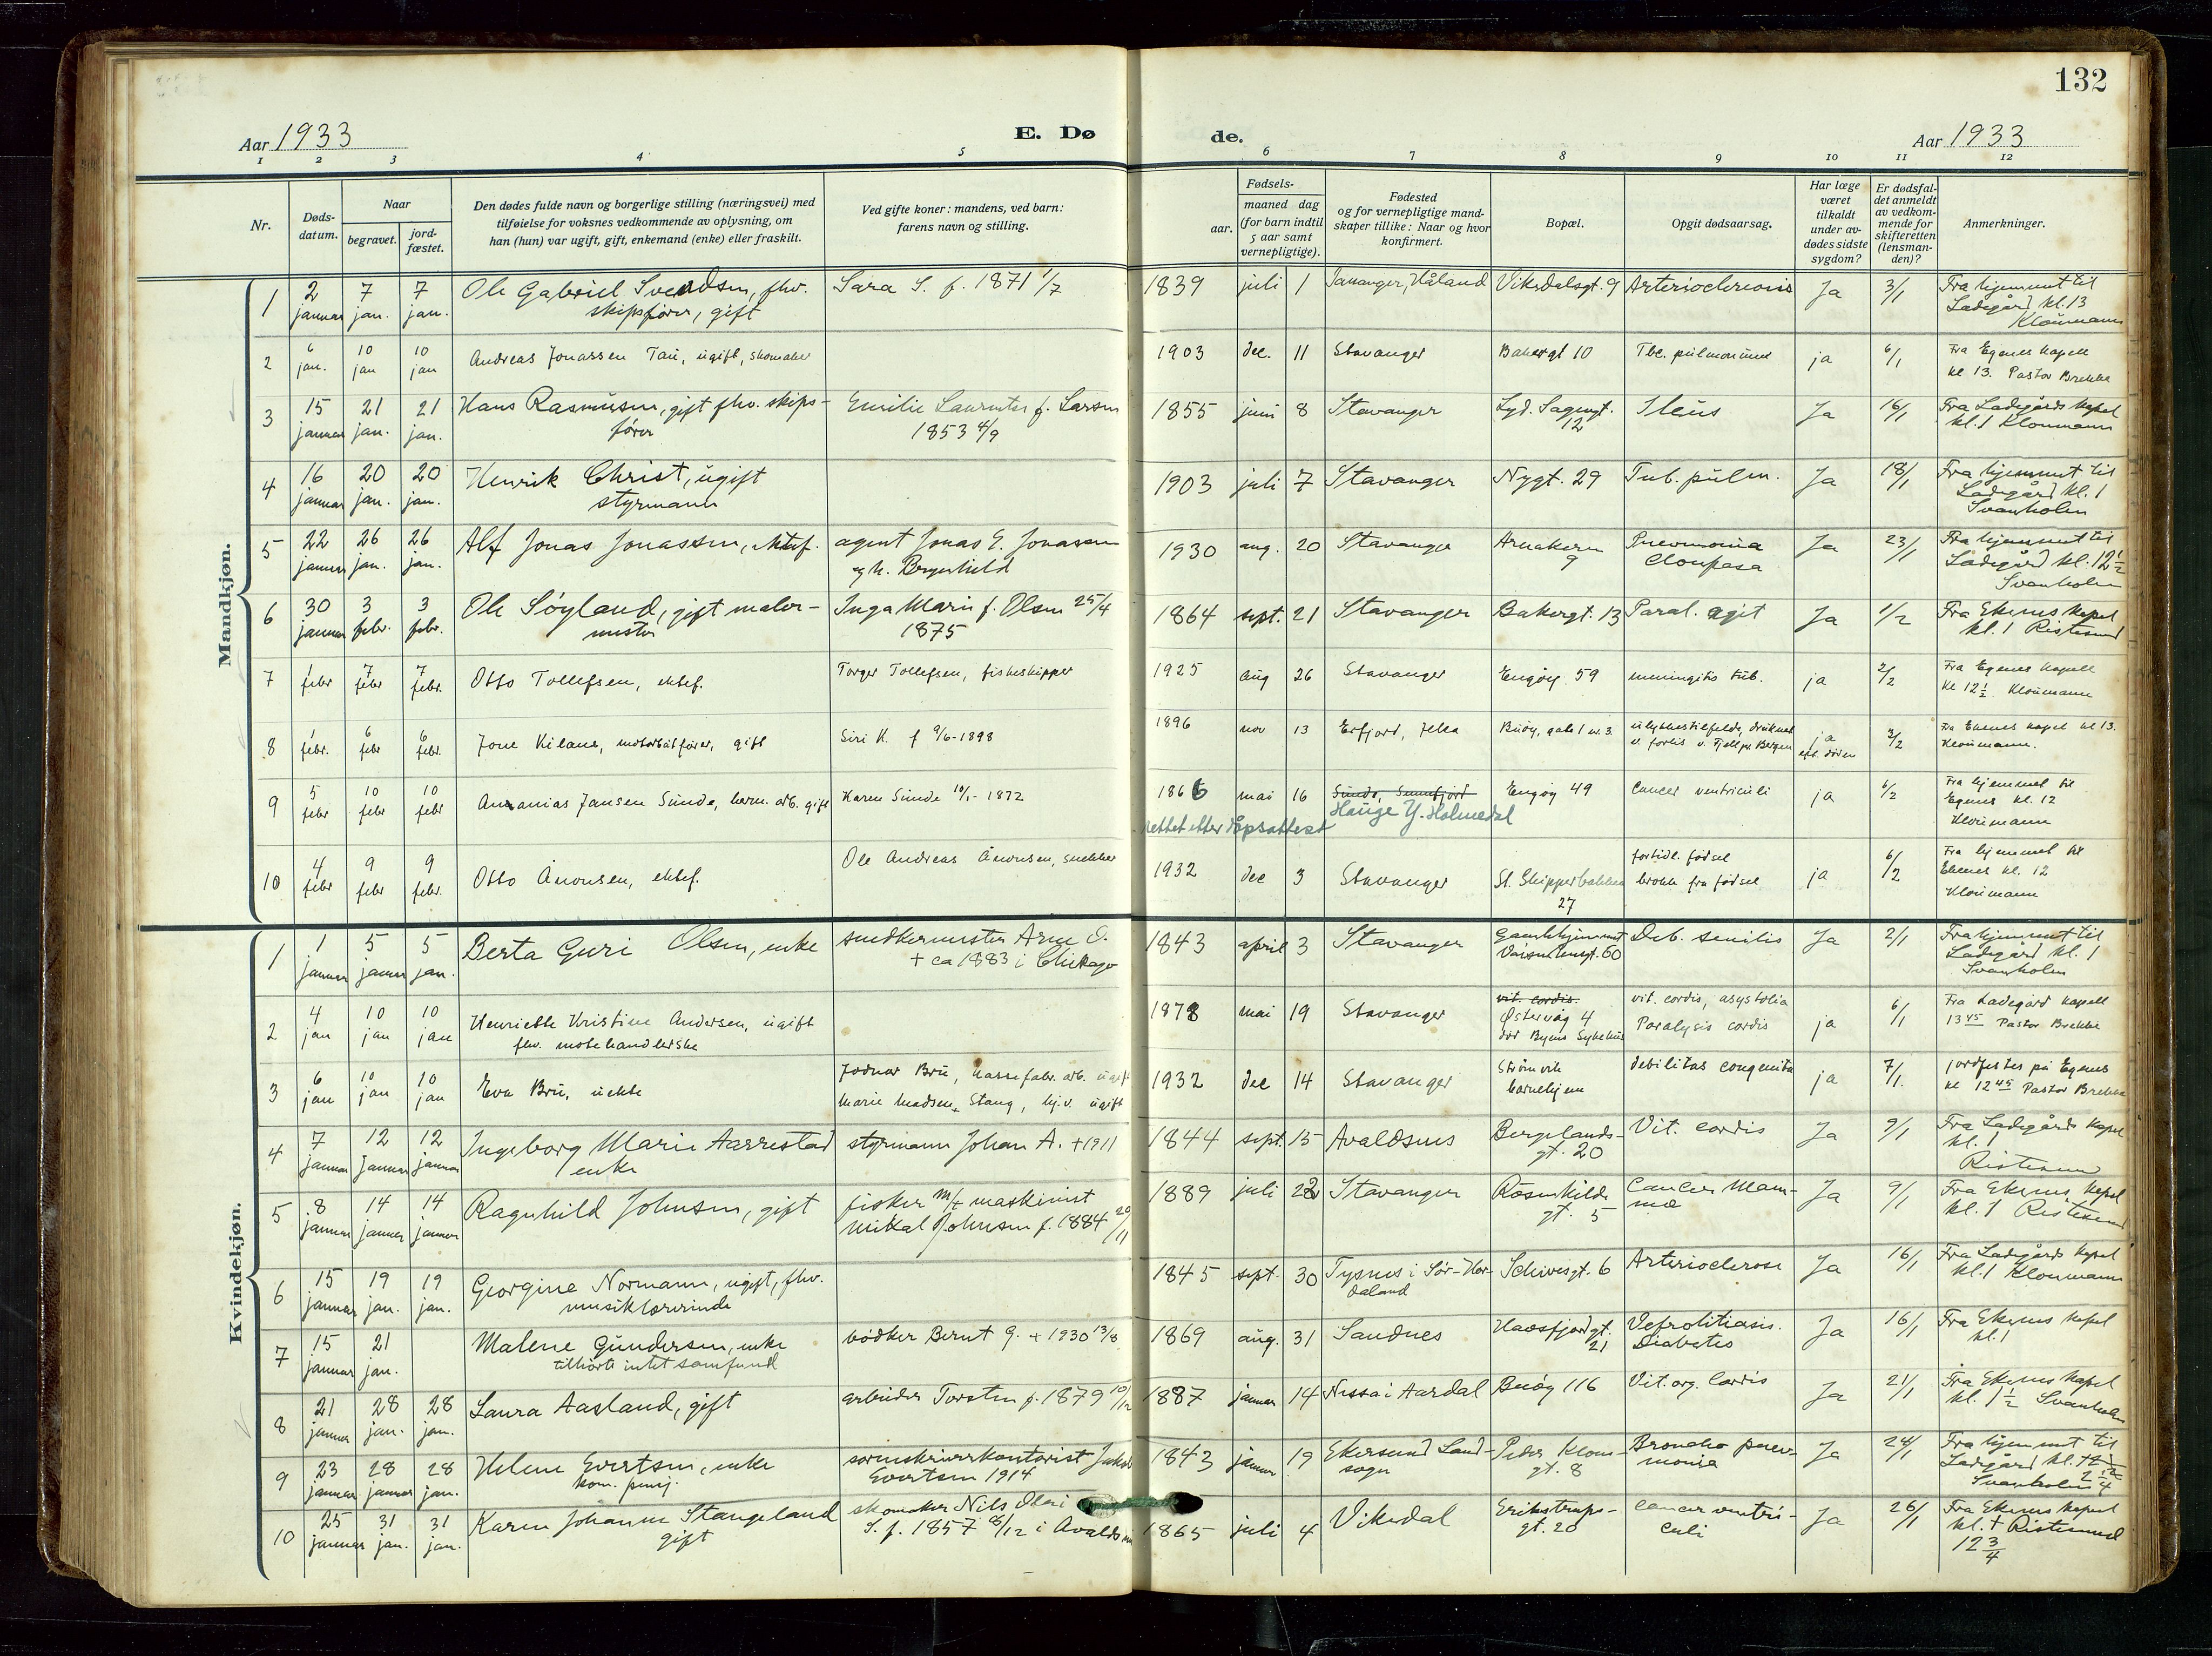 132
Aar 1933
E. Dø
de.
Aar 1933
1 2 3 4 5 6 7 8 9 10 11 12
Nr.
Døds-
datum.
Naar
begravet.
jord-
fæstet.
Den dødes fulde navn og borgerlige stilling (næringsvei) med
tilføielse for voksnes vedkommende av oplysning, om
han (hun) var ugift, gift, enkemand (enke) eller fraskilt.
Ved gifte koner: mandens, ved barn:
farens navn og stilling.
Fødsels-
aar.
maaned dag
(for barn indtil
5 aar samt
vernepligtige).
Fødested
og for vernepligtige mand-
skaper tillike: Naar og hvor
konfirmert.
Bopæl.
Opgit dødsaarsag.
Har læge
været
tilkaldt
under av-
dødes sidste
sygdom?
Er dødsfal-
det anmeldt
av vedkom-
mende for
skifteretten
(lensman-
den)?
Anmerkninger.
Mandkjøn.
1 2 januar 7 jan. 7 jan. Ole Gabriel Svendsen, fhv. skipsfører, gift Sara S. f. 1871 1/7 1839 juli 1 Tananger, Håland Vikedalsgt. 9 Ja 3/1 Fra hjemmet til Ladegård kl. 13 Kloumann
2 6 jan. 10 jan 10 jan Andreas Jonassen Tau, ugift, skomaker 1903 dec. 11 Stavanger Bakergt 10 Tbc. pulmonum ja 6/1 Fra Egenes kapell kl 13. Pastor Brekke
3 15 januar 21 jan. 21 jan. Hans Rasmusen, gift fhv. skips- fører Emilie f. Larsen 1853 4/9 1855 juni 8 Stavanger Lyd. Sagengt. 12 Ileus Ja 16/1 Fra Ladegårds kapel kl. 1 Kloumann
4 16 januar 20 jan. 20 jan. Henrik Christ, ugift styrmann 1903 juli 7 Stavanger Nygt. 29 Tub. pulm. Ja 18/1 Fra hjemmet til Ladegård kl. 1 Svanholm
5 22 januar 26 jan. 26 jan. Alf Jonas Jonassen, ektef. agent Jonas E. Jonassen og h. Borghild 1930 aug. 20 Stavanger 9 Pneumonia Ja 23/1 Fra hjemmet til Ladegård kl. 12 1/2 Svanholm
6 30 januar 3 febr. 3 febr. Ole Søyland, gift maler- mester Inga Marie f. Olsen 25/4 1875 1864 sept. 21 Stavanger Bakergt. 13 Paral. agit Ja 1/2 Fra Ekenes kapel kl. 1 Ristesund
7 1 febr 7 febr 7 febr. Otto Tollefsen, ektef. Torger Tollefsen, fiskeskipper 1925 aug 26 Stavanger Engøy 59 meningitis tub. ja 2/2 Fra Egenes kapell kl 12 1/2 Kloumann
8 1 febr. 6 febr 6 febr. Jone Kilane, motorbåtfører, gift Siri K. f 9/6-1898 1896 nov 13 Erfjord, Jelsa Buøy, gate 1 nr. 3 ulykkestilfelde, druknet v. forlis v. Fjell pr Bergen ja eft. døden 3/2 Fra Ekenes kapel kl 13. Kloumann.
9 5 febr 10 febr 10 febr Ananias Jansen Sunde, herm. arb. gift Karen Sunde 10/1-1872 1866 mai 16 Sunde, Sunnfjord Hauge Y. Holmedal Engøy 49 cancer ventriculi ja 6/2 Fra hjemmet til Egenes kl. 12 Kloumann
rettet etter dåpsattest
10 4 febr 9 febr 9 febr. Otto Ånonsen, ektef. Ole Andreas Ånonsen, snekker 1932 dec 3 Stavanger St. Skipperbakken 27 fortidl. fødsel brokk fra fødsel ja 6/2 Fra hjemmet til Ekenes kl. 12 Kloumann
Kvindekjøn.
1 1 januar 5 januar 5 jan. Berta Guri Olsen, enke snedkermester Arne O. + ca 1883 i Chikago 1843 april 3 Stavanger Gamlehjemmet 60 Deb. senilis Ja 2/1 Fra hjemmet til Ladegård kl. 1 Svanholm
2 4 jan 10 jan 10 jan Henriette Kristine Andersen, ugift fhv. motehandlerske 1878 mai 19 Stavanger vit. cordis. Østervåg 4 død Byens Sykehus vit. cordis, asystolia Paralysis cordis ja 6/1 Fra Ladegård kapell 13 45 Pastor Brekke
3 6 jan 10 jan 10 jan Eva Bru, uekte Jodnar Bru, kassefabr. arb. ugift Marie Madsen, Stang, hj.v. ugift 1932 dec 14 Stavanger Strømvik barnehjem debilitas congenita ja 7/1. jordfestes på Egenes kl 12 45 Pastor Brekke
4 7 januar 12 Januar 12 januar Ingeborg Marie Aarrestad enke styrmann Johan A. +1911 1844 sept. 15 Avaldsnes Bergelands- gt. 20 Vit. cordis Ja 9/1 Fra Ladegårds kapel kl. 1 Ristesund
5 8 januar 14 januar 14 januar Ragnhild Johnsen, gift fisker m/k maskinist Mikal Johnsen f. 1884 20/11 1889 juli 22 Stavanger Rosenkilde gt. 5 Cancer Mam- mæ Ja 9/1 Fra Ekenes kapel kl. 1 Ristesund
6 15 januar 19 jan. 19 jan. Georgine Normann, ugift, fhv. musiklærerinde 1845 sept. 30 Tysnes i Sør-Hor- daland Schivesgt. 6 Arteriosclerose Ja 16/1 Fra Ladegårds kapel kl. 1 Kloumann
7 15 januar 21 jan. Malene Gundersen, enke tilhørte intet samfund bødker Bernt G. + 1930 13/8 1869 aug. 31 Sandnes Havsfjordgt. 21 Nefrolitiasis. Diabetes Ja 16/1 Fra Ekenes kapel kl. 1
8 21 januar 28 jan. 28 jan. Laura Aasland, gift arbeider Torsten f. 1879 10/12 1887 januar 14 Nessa i Aardal Buøy 116 Vit. org. Cordis Ja 21/1 Fra Ekenes kapel kl. 1 1/2 Svanholm
9 23 januar 28 januar 28 jan. Helene Evertsen, enke kom. penj. sorenskriverkontorist Jakob Evertsen 1914 1843 januar 19 Ekersund Land- sogn Peder Klows gt. 8 Broncho pnev- monia Ja 24/1 Fra hjemmet til Ladegård kl. 12 1/2 2 1/4 Svanholm
10 25 januar 31 jan. 31 jan. Karen Johanne Stangeland gift skomaker Nils Olai S. f. 1857 8/12 i Avaldsnes 1865 juli 4 Vikedal Erikstrups- gt. 20 Cancer ventri- culi Ja 26/1 Fra Ekenes kapel kl. 1 Ristesund 12 3/4